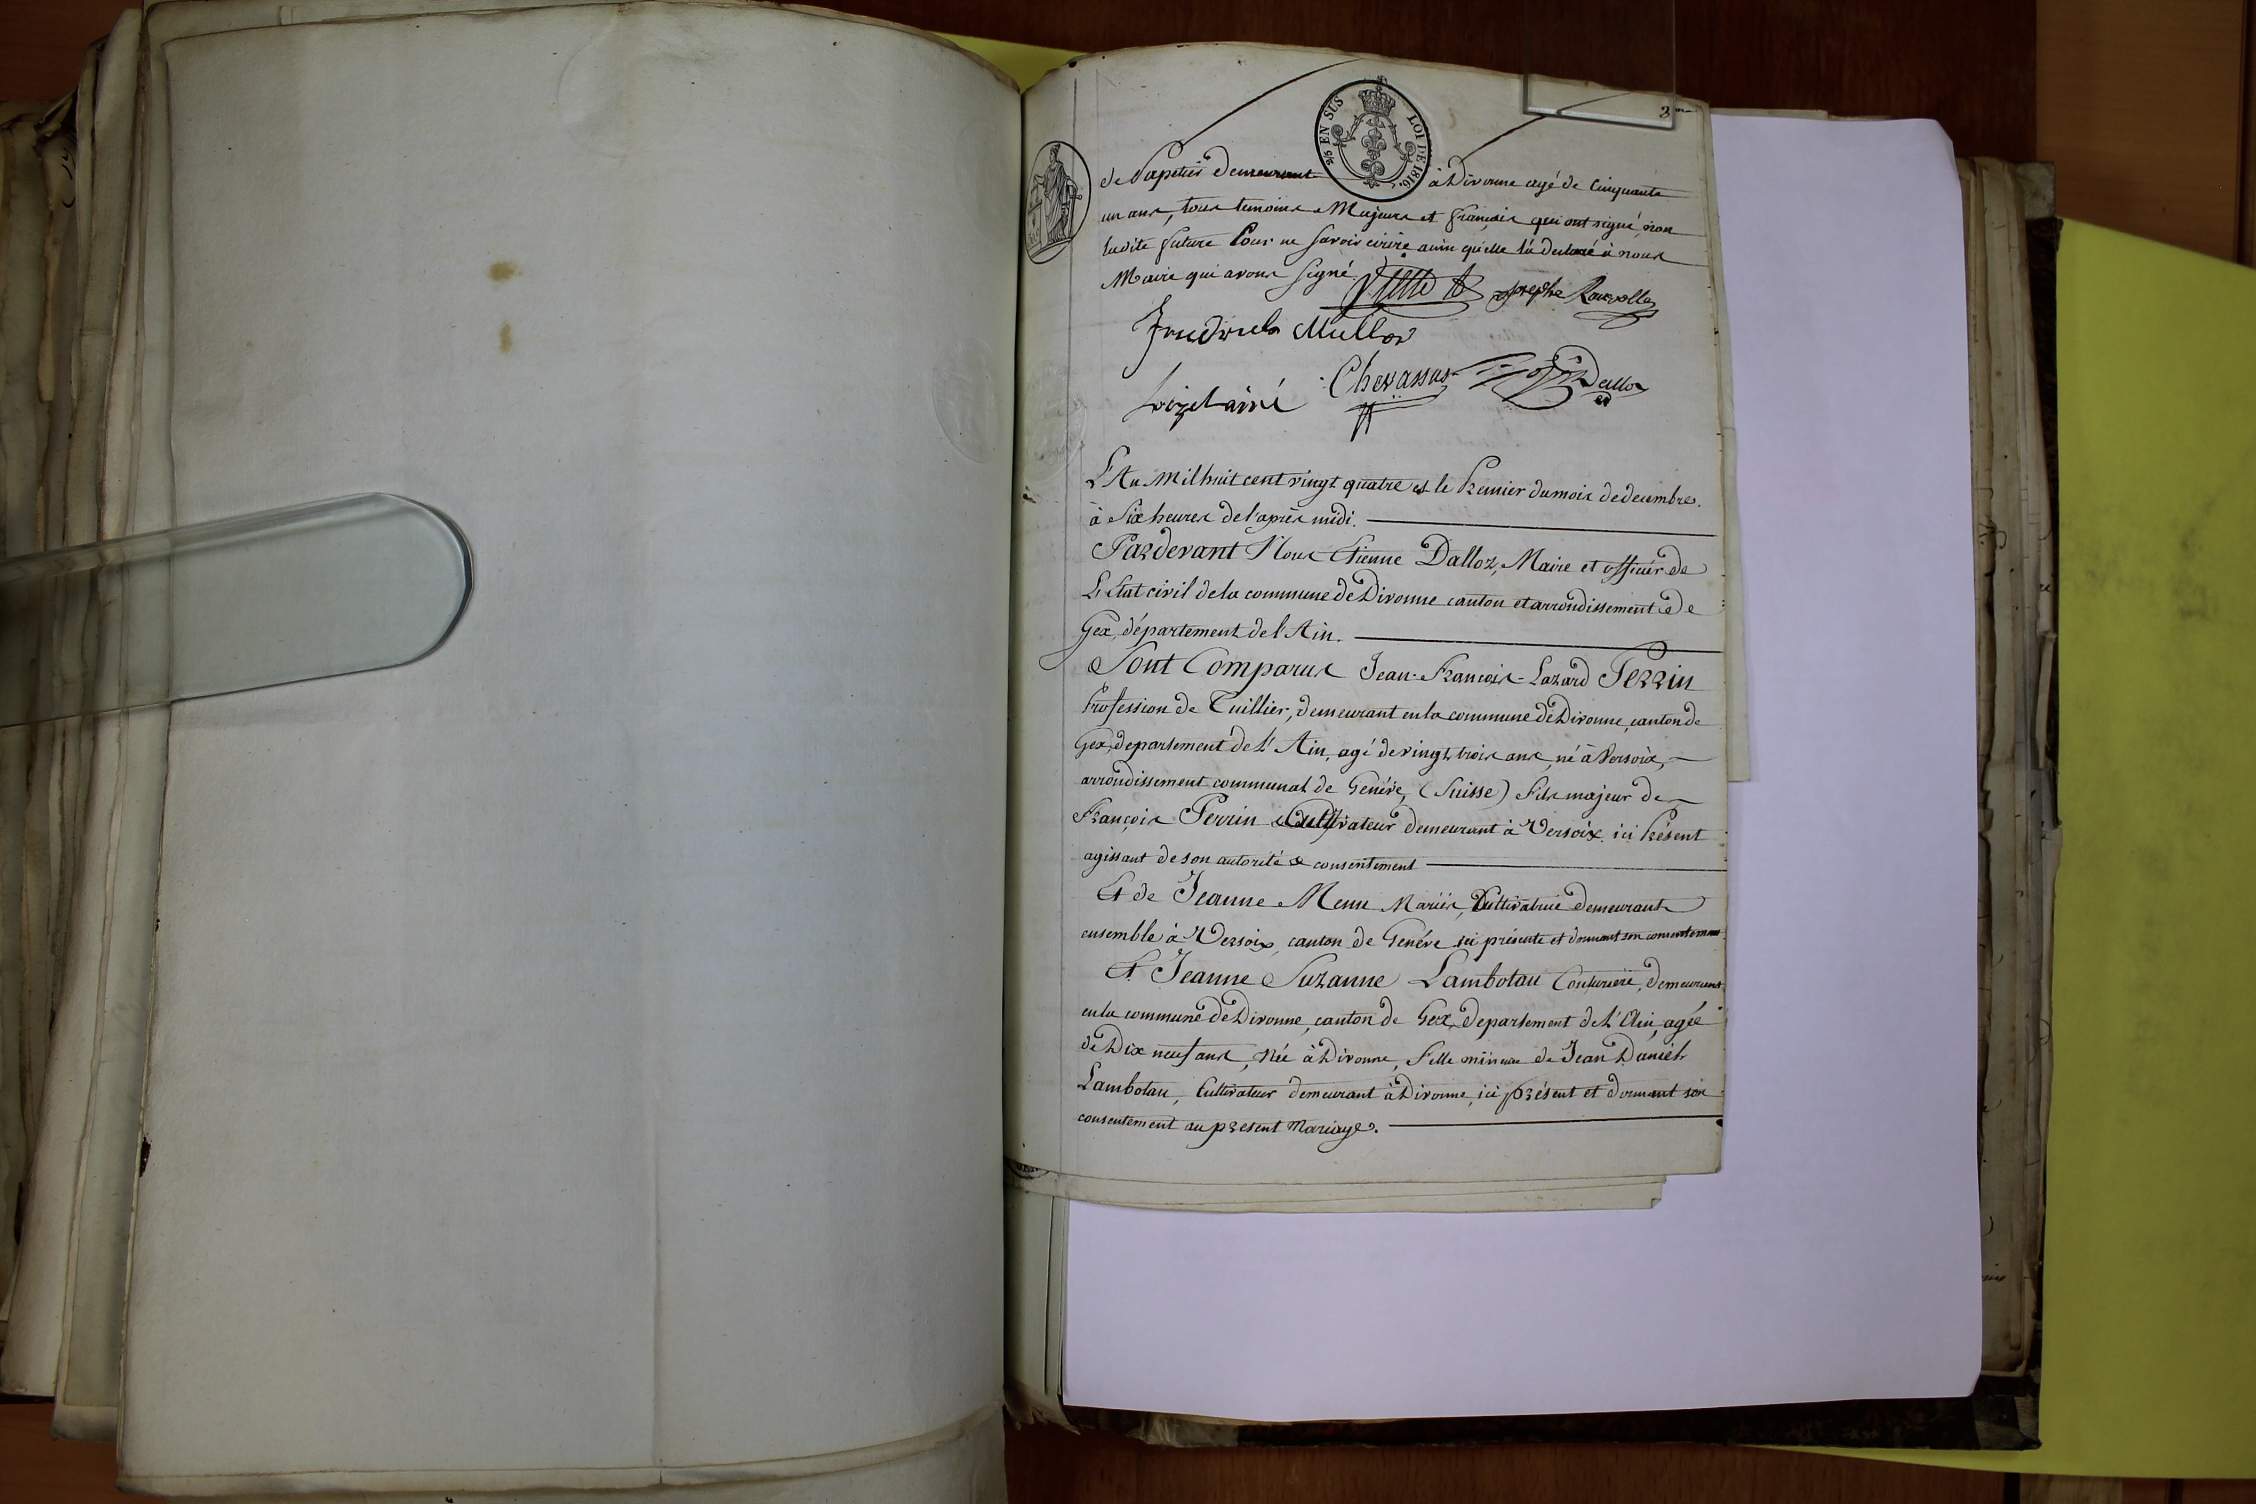 3
25 EN SUS LOI DE 1816.
de Papetier demeurant à Divonne agé de Cinquante
un ans, tous temoins Majeurs et français qui ont signé, non
ladite future Pour ne savoir écrire ainsi qu'elle l'a declaré à nous
Maire qui avons signé.
Josephe
Friedrich Muller
Chevassus Dalloz
Loizel ainé
L'An Mil huit cent vingt quatre et le Premier du mois de decembre.
à Six heures de l'après midi.
Pardevant Nous Etienne Dalloz, Maire et officier de
L'Etat civil de la commune de Divonne canton et arrondissement de
Gex, département de l'Ain.
Sont Comparus Jean-François-Lazard Perrin
Profession de Tuillier, demeurant en la commune de Divonne, canton de
Gex, departement de L'Ain, agé de vingt trois ans, né à Versoix,
arrondissement communal de Genéve, (Suisse) fils majeur de
François Perrin Cultivateur demeurant à Versoix ici Présent
agissant de son autorité & consentement
Et de Jeanne Menu Mariés, Cultivatrice demeurant
ensemble à Versoix, canton de Genéve ici présente et donnant son consentement
Et Jeanne Suzanne Lambotau Couturiere, demeurant
en la commune de Divonne, canton de Gex, departement de L'Ain, agée
de Dix neuf ans, Née à Divonne, fille mineure de Jean Daniel
Lambotau, Cultivateur demeurant à Divonne, ici présent et donnant son
consentement au present Mariage.